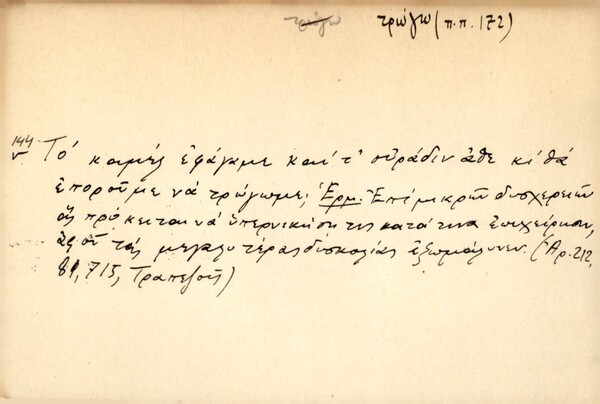 τρώγω
τρώγω (π.π. 172)
144
Τό καμήλ ἐφάγαμε καί τ' οὐράδιν ἀθε κί θά
ἐποροῦμε νά τρώγωμε; Ἑρμ. Ἐπί μικρῶν δυσχερειῶν
ἅς πρόκειται νά ὑπερνικήσῃ τις κατά τινα ἐπιχείρησιν,
ἀφ' οὗ τάς μεγαλυτέρας δυσκολίας ἐξωμάλυνεν. (Ἀρ. 212,
81, 715, Τραπεζοῦς)